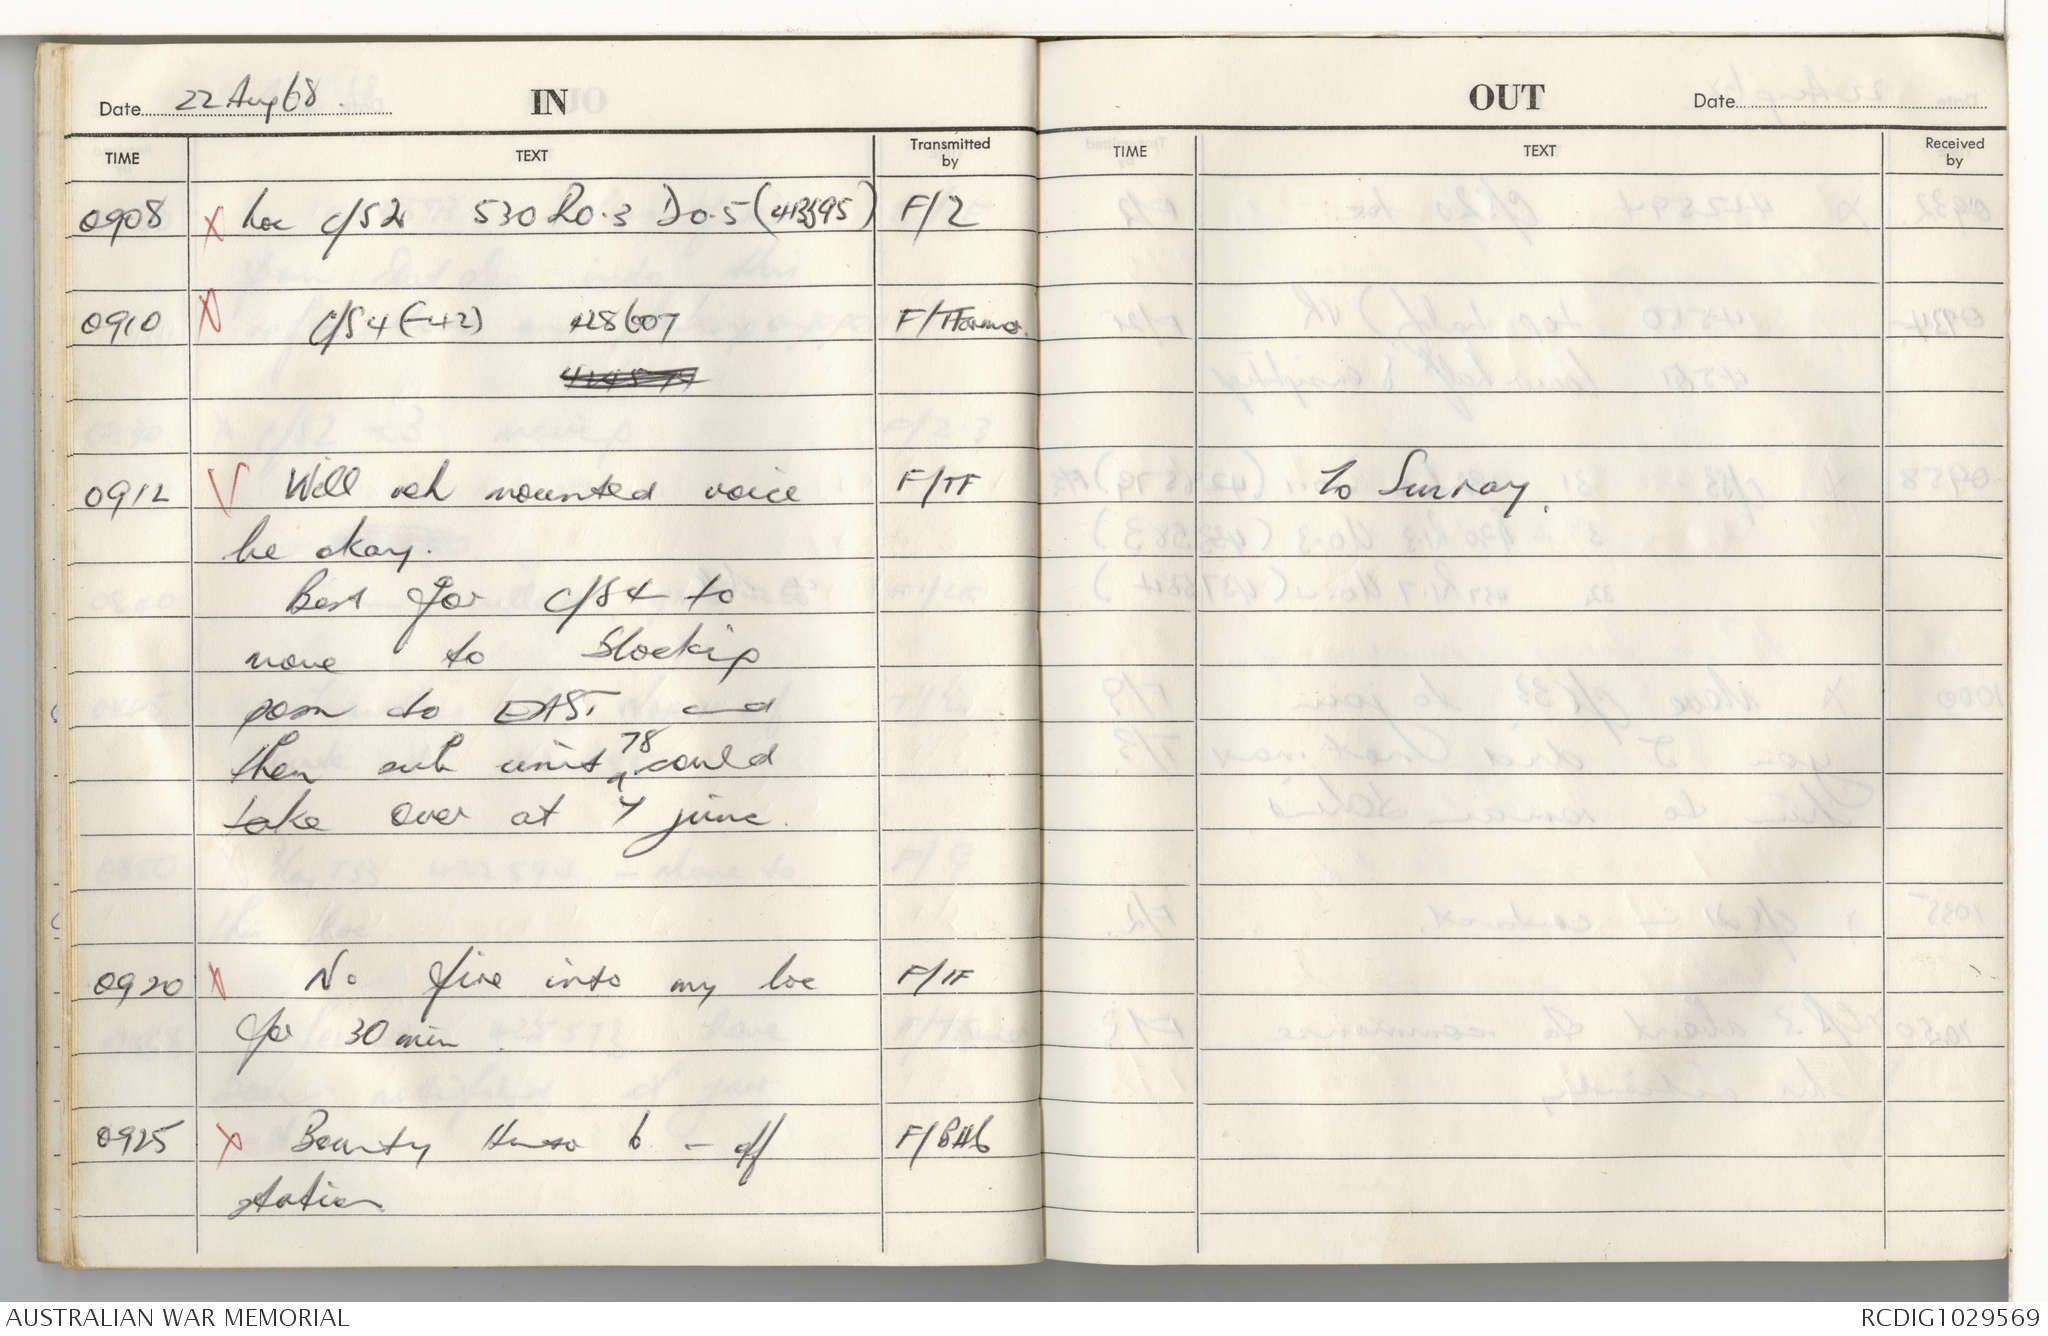 Date 22 Aug 68.
IN
TIME TEXT Transmitted by
0908 X Loc c/s 2 530 R0.3 D0.5 (413595) F/2
0910 X c/s 4 (-42) 428607 F/TFarmer.
0912 V Will veh mounted voice F/TF
be okay.
Best for c/s 4 to
move to blocking
posn to EAST and
then sub unit 78 could
take over at 7 june.
0920 X No fire into my loc F/TF
for 30 min
0925 X Bounty 6 - off F/BH6
station
OUT
Date
TIME TEXT Received by
To Sunray.
AUSTRALIAN WAR MEMORIAL
RCDIG1029569